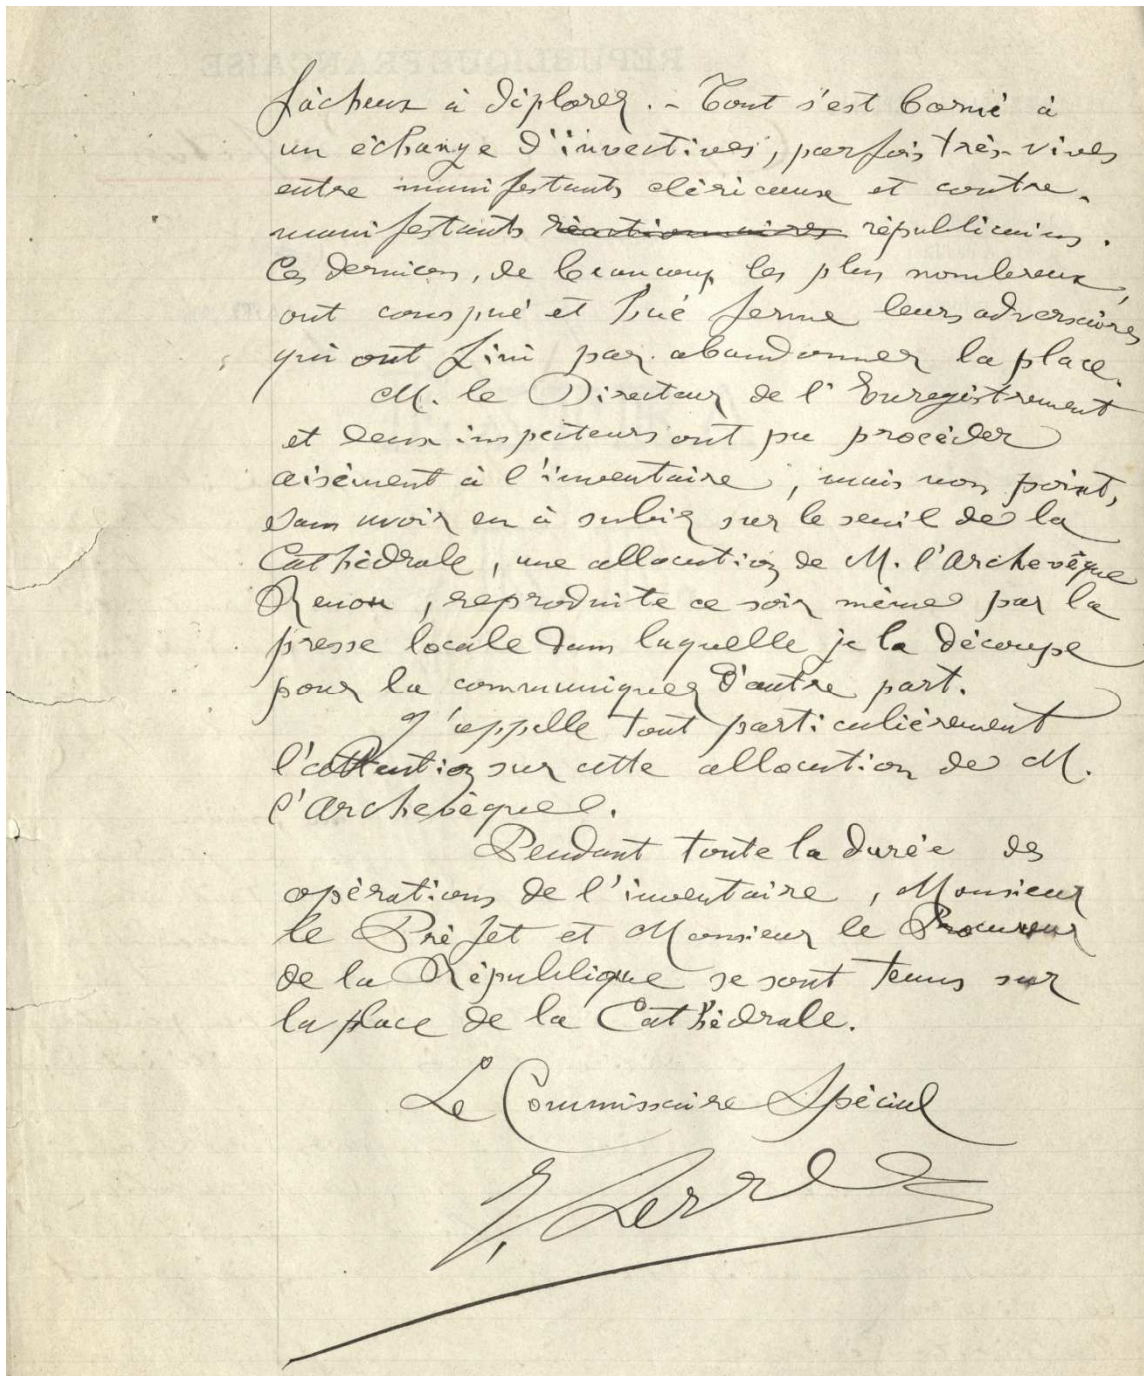 fâcheux à déplorer. - Tout s'est borné à
un échange d'invectives, parfois très-vives
entre manifestants cléricaux et contre-
manifestants réactionnaires républicains.
Ces derniers, de beaucoup les plus nombreux,
ont conspué et hué ferme leurs adversaires
qui ont fini par abandonner la place.
M. le Directeur de l'Enregistrement
et deux inspecteurs ont pu procéder
aisément à l'inventaire, mais non point,
sans avoir eu à subir sur le seuil de la
Cathédrale, une allocution de M. l'Archevêque
Renou, reproduite ce soir même par la
presse locale dans laquelle je la découpe
pour la communiquer d'autre part.
J'appelle tout particulièrement
l'attention sur cette allocution de M.
l'Archevêque.
Pendant toute la durée des
opérations de l'inventaire, Monsieur
le Préfet et Monsieur le Procureur
de la République se sont tenus sur
la place de la Cathédrale.
Le Commissaire Spécial